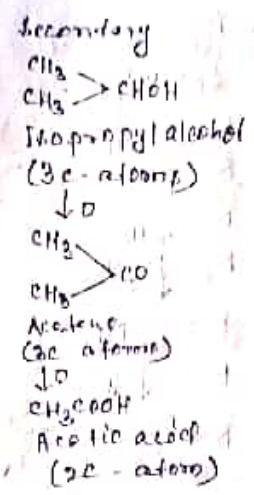 Secondary
CH3
CH3 > CHOH
Isopropyl alcohol
(3c - atoms)
↓ O
CH3
CO
CH3
Acetone
(3c atoms)
↓ O
CH3COOH
Acetic acid
(2c - atom)